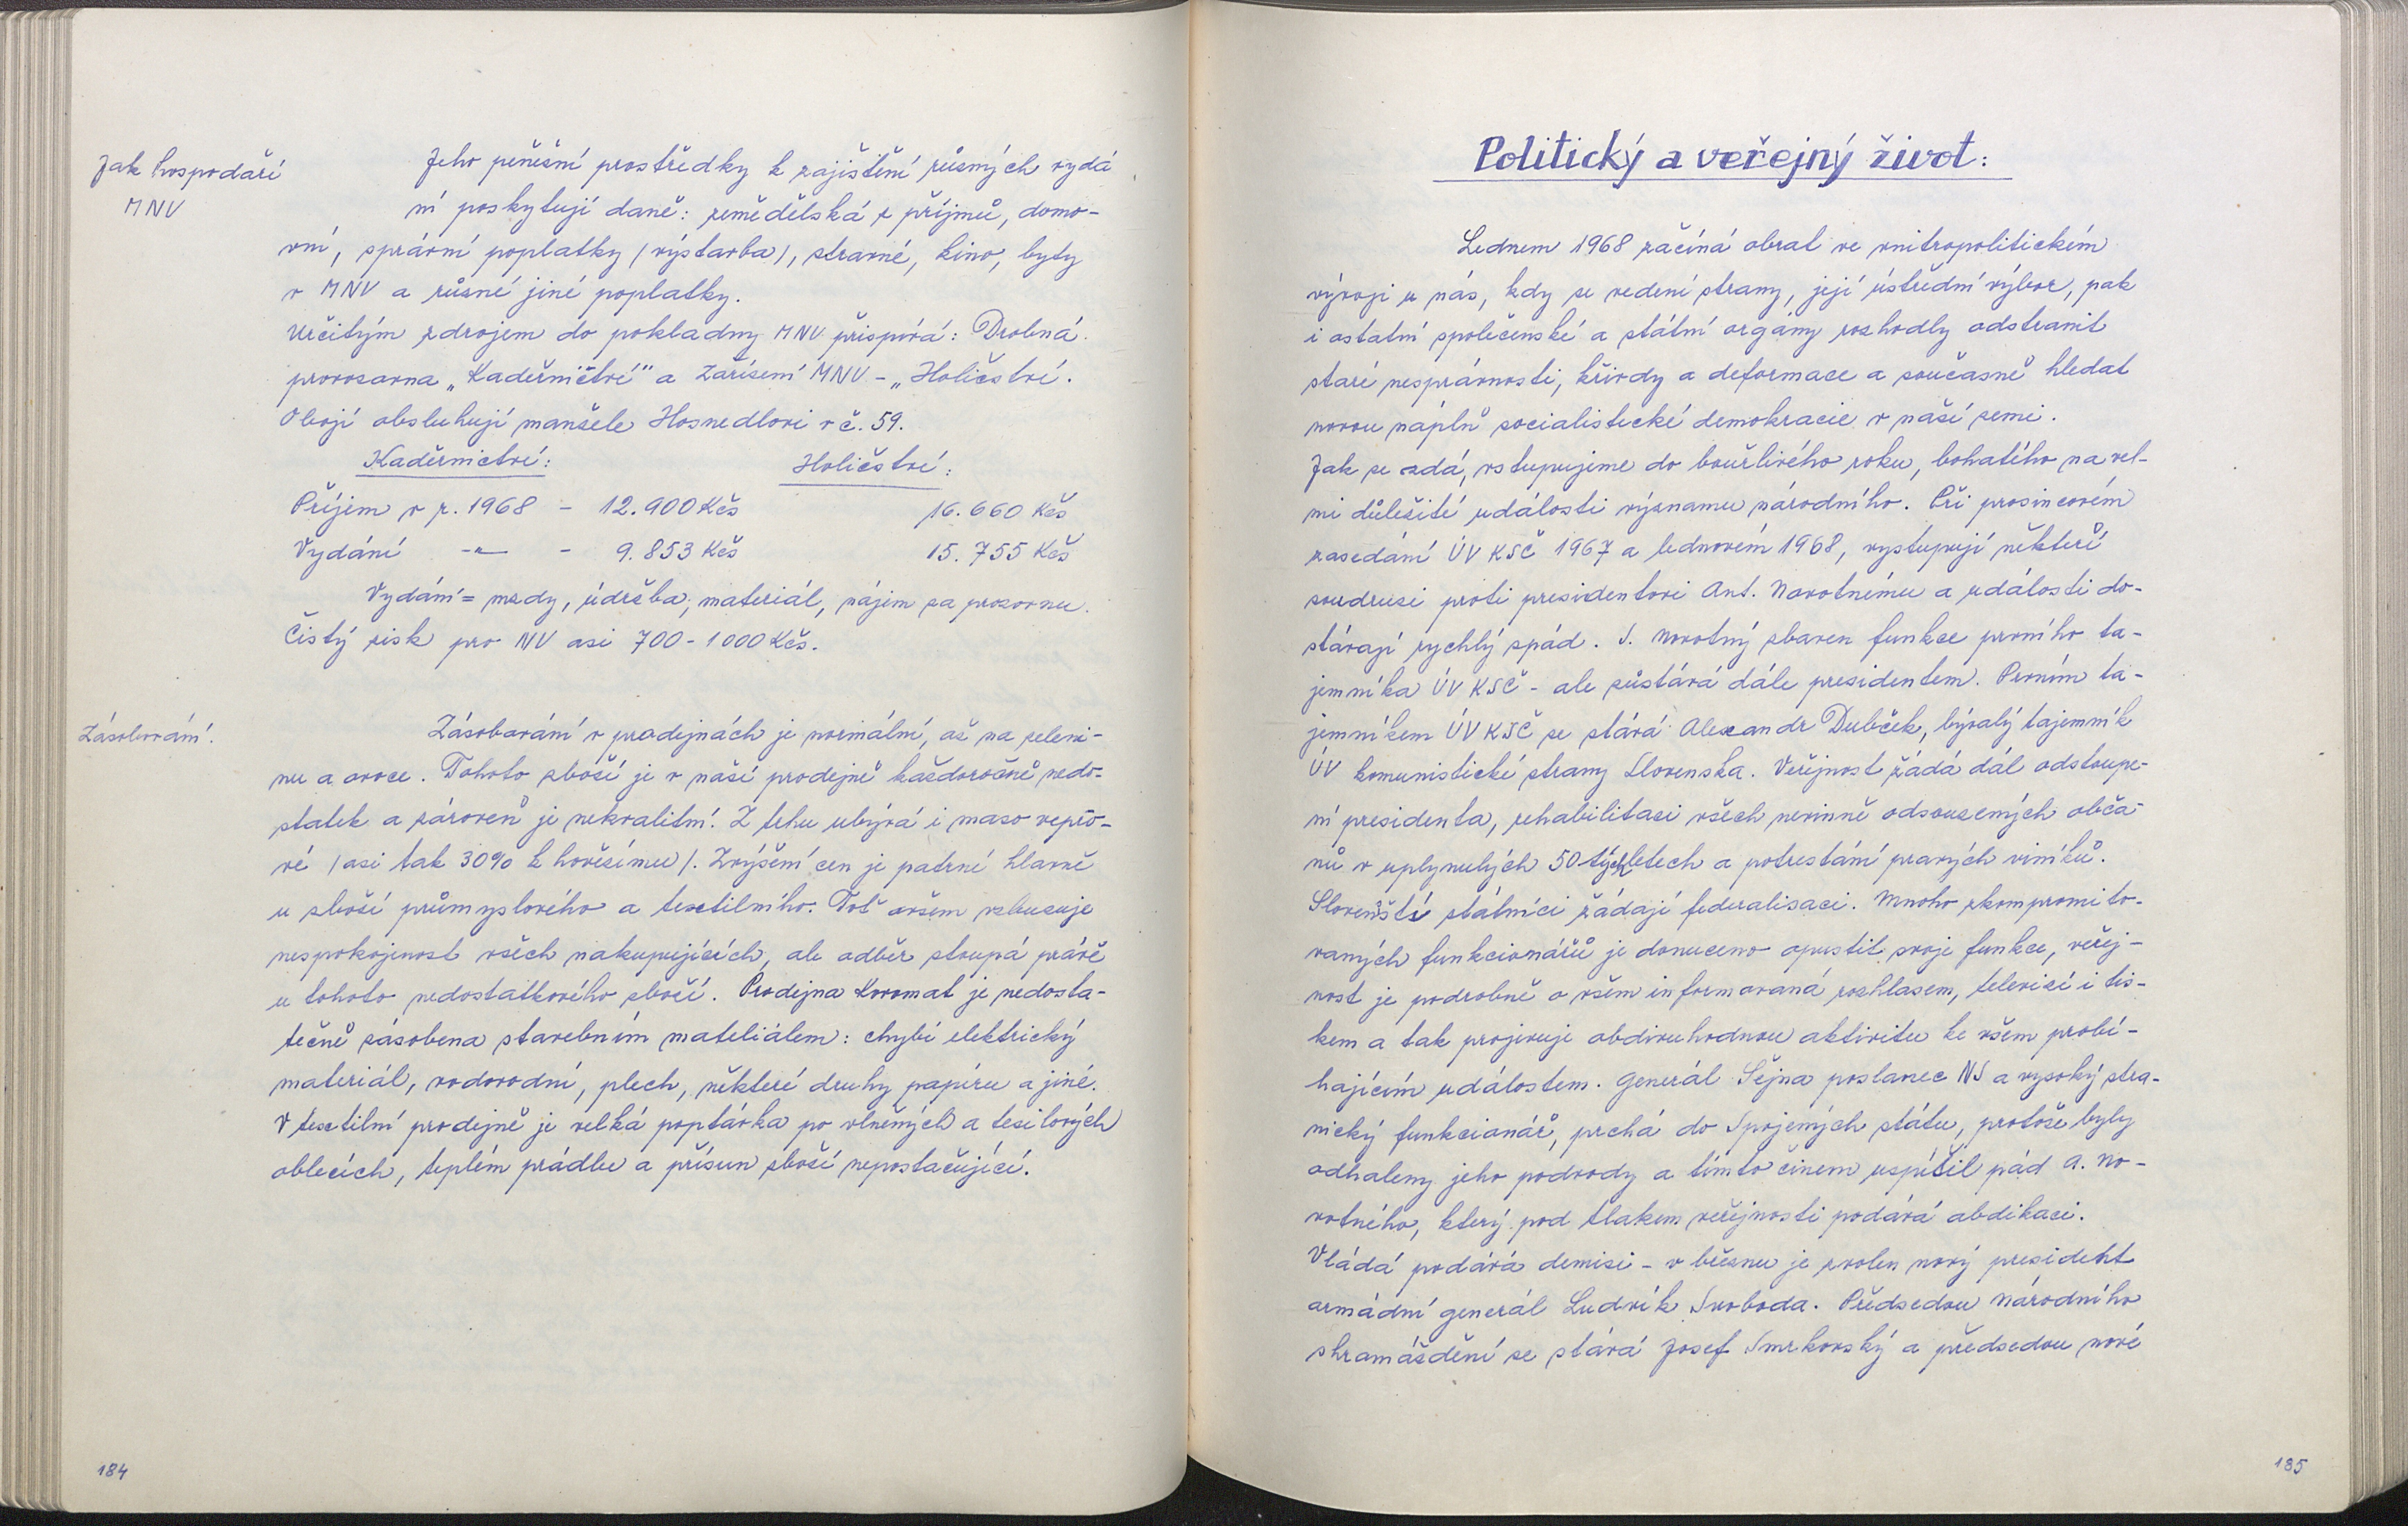 Jak hospodaří
MNV
Jeho peněžní prostředky k zajištění různých vydá
ní poskytují daně: zemědělská z příjmů, domo-
vní, správní poplatky /výstavba/, stravné, kino, byty
v MNV a různé jiné poplatky.
Určitým zdrojem do pokladny MNV přispívá: Drobná
provozovna „Kadeřnictví" a Zařízení MNV - „Holičství.
Obojí obsluhují manžele Hosnedlovi v č. 59.
Kadeřnictví: Holičství:
Příjem v r. 1968 - 12.900 Kčs 16.660 Kčs
Vydání -"- - 9.853 Kčs 15.755 Kčs
Vydání = mzdy, údržba, materiál, nájem za provozovnu.
Čistý zisk pro NV asi 700 - 1000 Kčs.
Zásobování.
Zásobování v prodejnách je normální, až na zeleni-
nu a ovoce. Tohoto zboží je v naší prodejně každoročně nedo-
statek a zároveň je nekvalitní. Z trhu ubývá i maso vepřo-
vé /asi tak 30% k hovězímu/. Zvýšení cen je patrné hlavně
u zboží průmyslového a textilního. Toť ovšem vzbuzuje
nespokojenost všech nakupujících, ale odběr stoupá právě
u tohoto nedostatkového zboží. Prodejna Kovomat je nedosta-
tečně zásobena stavebním mateliálem: chybí elektrický
materiál, vodovodní, plech, některé druhy papíru a jiné.
V textilní prodejně je velká poptávka po vlněných a tesilových
oblecích, teplém prádlu a přísun zboží nepostačující.
184
Politický a veřejný život:
Lednem 1968 začíná obrat ve vnitropolitickém
vývoji u nás, kdy se vedení strany, její ústřední výbor, pak
i ostatní společenské a státní orgány rozhodly odstranit
staré nesprávnosti, křivdy a deformace a současně hledat
novou náplň socialistické demokracie v naší zemi.
Jak se zdá, vstupujeme do bouřlivého roku, bohatého na vel-
mi důležité události významu národního. Při prosincovém
zasedání ÚV KSČ 1967 a lednovém 1968, vystupují někteří
soudruzi proti presidentovi Ant. Novotnému a události do-
stávají rychlý spád. S. Novotný zbaven funkce prvního ta-
jemníka ÚV KSČ - ale zůstává dále presidentem. Prvním ta-
jemníkem ÚV KSČ se stává Alexandr Dubček, bývalý tajemník
ÚV komunistické strany Slovenska. Veřejnost žádá dál odstoupe-
ní presidenta, rehabilitaci všech nevinně odsouzených obča-
nů v uplynulých 50 tých letech a potrestání pravých viníků.
Slovenští státníci žádají federalisaci. Mnoho zkompromito-
vaných funkcionářů je donuceno opustit svoje funkce, veřej-
nost je podrobně o všem informovaná rozhlasem, televizí i tis-
kem a tak projevuje obdivuhodnou aktivitu ke všem probí-
hajícím událostem. Generál Šejna poslanec NS a vysoký stra-
nický funkcionář, prchá do Spojených státu, protože byly
odhaleny jeho podvody a tímto činem uspíšil pád A. No-
votného, který pod tlakem veřejnosti podává abdikaci.
Vládá podává demisi - v březnu je zvolen nový president
armádní generál Ludvík Svoboda. Předsedou Národního
shromáždění se stává Josef Smrkovský a předsedou nové
185